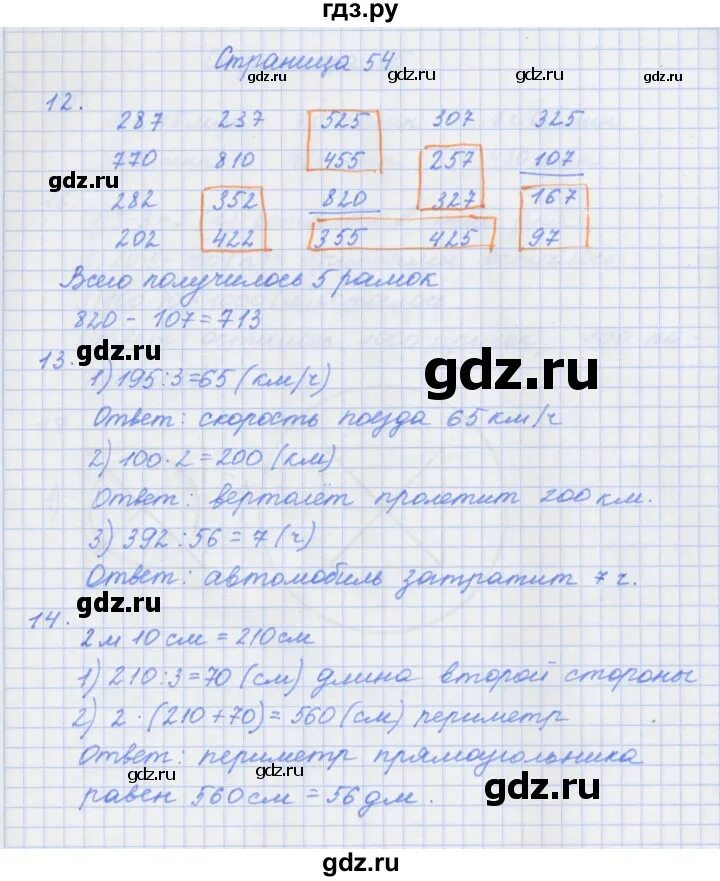 гдз.ру
Страница 54
gdz.ru gdz.ru gdz.ru
12.
287 237 525 307 325
770 810 455 257 107
gdz.ru
282 352 820 327 167
202 422 355 425 97
Всего получилось 5 рамок
820 - 107 = 713
gdz.ru
13.
1) 195:3=65 (км/ч)
Ответ: скорость поезда 65 км/ч
2) 100·2=200 (км)
Ответ: вертолёт пролетит 200 км.
3) 392:56=7 (ч)
Ответ: автомобиль затратит 7 ч.
gdz.ru
14.
2 м 10 см = 210 см
1) 210:3=70 (см) длина второй стороны
2) 2·(210+70)=560 (см) периметр
Ответ: периметр прямоугольника
gdz.ru gdz.ru gdz.ru
равен 560 см = 56 дм.
gdz.ru